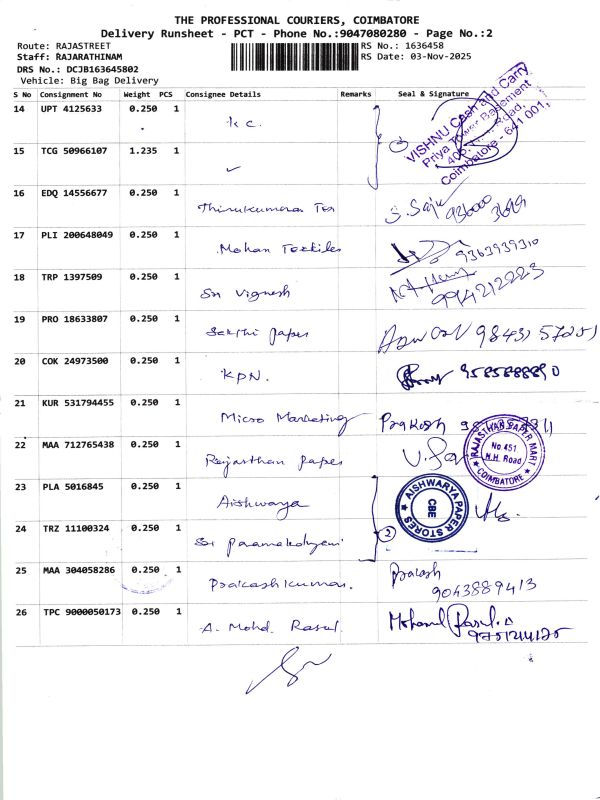 THE PROFESSIONAL COURIERS, COIMBATORE
Delivery Runsheet - PCT - Phone No.:9047080280 - Page No.:2
Route: RAJASTREET
RS No.: 1636458
Staff: RAJARATHINAM
RS Date: 03-Nov-2025
DRS No.: DCJB163645802
Vehicle: Big Bag Delivery
S No Consignment No Weight PCS Consignee Details Remarks Seal & Signature
14 UPT 4125633 0.250 1 K C.
VISHNU Cash and Carry
Priya Tower Basement
Road,
Coimbatore - 641 001,
15 TCG 50966107 1.235 1
16 EDQ 14556677 0.250 1 Thirukumaran Tex S. Saju
17 PLI 200648049 0.250 1 Mohan Textiles 9363939310
18 TRP 1397509 0.250 1 Sri Vignesh 9944212223
19 PRO 18633807 0.250 1 Sakthi paper
20 COK 24973500 0.250 1 KPN.
21 KUR 531794455 0.250 1 Micro Marketing Prakash
22 MAA 712765438 0.250 1 Rajasthan paper
RAJASTHAN PAPER MART
No 451
H.H. Road
COIMBATORE
23 PLA 5016845 0.250 1 Aishwarya
AISHWARYA PAPER STORES
CBE
24 TRZ 11100324 0.250 1 2
25 MAA 304058286 0.250 1 Prakashkumar. Prakash
9043889413
26 TPC 9000050173 0.250 1 A. Mohd. Rasul. Mohamed Rasul. A